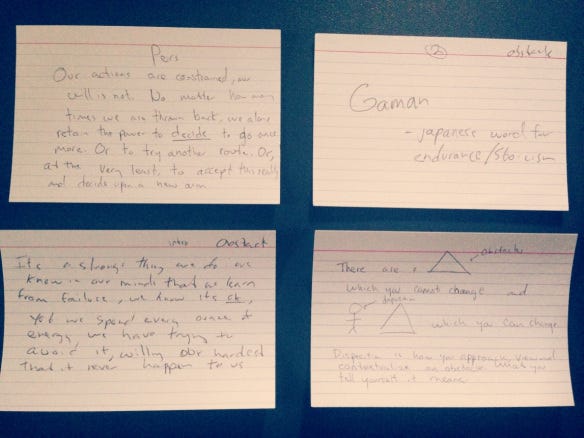 Pers
Our actions are constrained, our
will is not. No matter how many
times we are thrown back, we alone
retain the power to decide to go once
more. Or to try another route. Or,
at the very least, to accept this reality
and decide upon a new aim
obstacle
Gaman
- japanese word for
endurance/stoicism
intro
It's a strange thing we do we
know in our minds that we learn
from failure, we know its ok,
yet we spend every ounce of
energy we have trying to
avoid it, willing our hardest
that it never happen to us
obstacles
There are
which you cannot change and
which you can change.
Disposition is how you approach, view and
contextualize an obstacle. What you
tell yourself it means